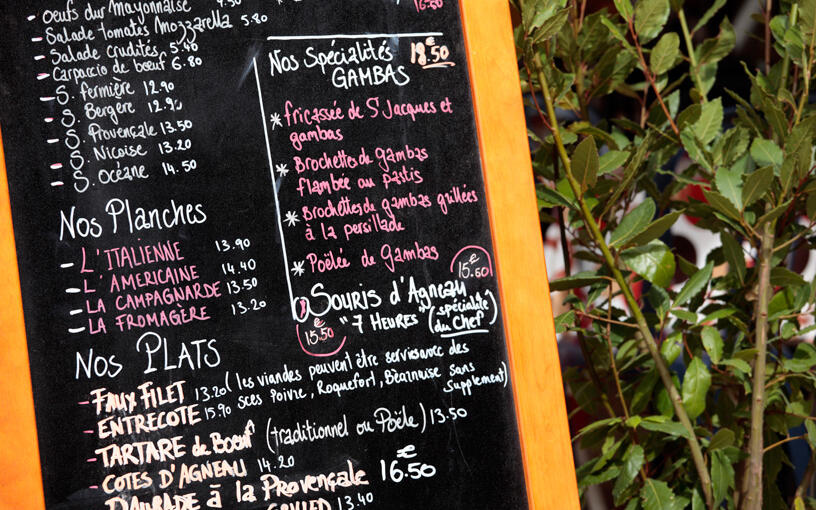 Oeufs dur Mayonnaise
Salade tomates Mozzarella 5.80
Salade crudités 5.40
Carpaccio de bœuf 6.80
S. fermière 12.90
S. Bergère 12.90
S. Provençale 13.50
S. Nicoise 13.20
S. Océane 14.50
Nos Planches
L'ITALIENNE 13.90
L'AMERICAINE 14.40
LA CAMPAGNARDE 13.50
LA FROMAGÈRE 13.20
Nos PLATS
FAUX FILET 13.20 (les viandes peuvent être servies avec des
sces Poivre, Roquefort, Béarnaise sans
supplement)
ENTRECOTE 15.90
TARTARE de Bœuf (traditionnel ou Poêle) 13.50
COTES D'AGNEAU 14.20
DAURADE à la Provençale 16.50€
13.40
16.50
Nos Spécialités 18.50€
GAMBAS
* fricassée de St Jacques et
gambas
* Brochettes de Gambas
flambée au pastis
* Brochettes de gambas grillées
à la persillade
* Poëlée de Gambas
15.50€
Souris d'Agneau
"7 HEURES" (spécialité
du Chef)
15.50€